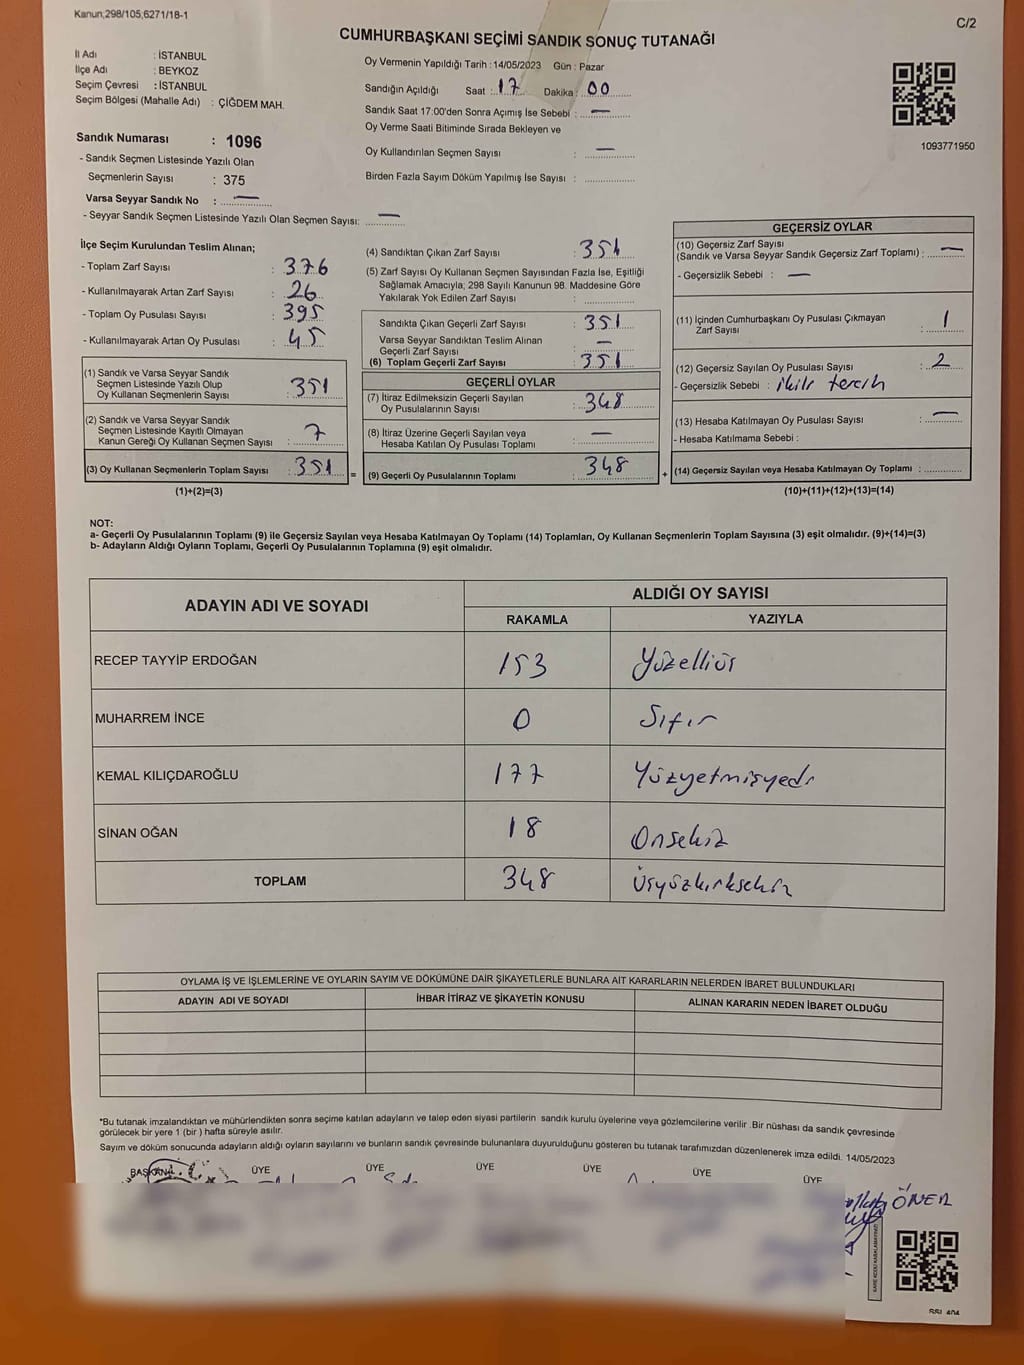 Kanun;298/105,6271/18-1
C/2
CUMHURBAŞKANI SEÇİMİ SANDIK SONUÇ TUTANAĞI
İl Adı : İSTANBUL
İlçe Adı : BEYKOZ
Seçim Çevresi : İSTANBUL
Seçim Bölgesi (Mahalle Adı) : ÇİĞDEM MAH.
Sandık Numarası : 1096
- Sandık Seçmen Listesinde Yazılı Olan
Seçmenlerin Sayısı : 375
Varsa Seyyar Sandık No : —
- Seyyar Sandık Seçmen Listesinde Yazılı Olan Seçmen Sayısı: —
Oy Vermenin Yapıldığı Tarih : 14/05/2023 Gün : Pazar
Sandığın Açıldığı Saat : 17 Dakika : 00
Sandık Saat 17:00'den Sonra Açmış İse Sebebi : —
Oy Verme Saati Bitiminde Sırada Bekleyen ve
Oy Kullandırılan Seçmen Sayısı : —
Birden Fazla Sayım Döküm Yapılmış İse Sayısı :
1093771950
İlçe Seçim Kurulundan Teslim Alınan;
- Toplam Zarf Sayısı : 376
- Kullanılmayarak Artan Zarf Sayısı : 26
- Toplam Oy Pusulası Sayısı : 395
- Kullanılmayarak Artan Oy Pusulası : 45
(1) Sandık ve Varsa Seyyar Sandık
Seçmen Listesinde Yazılı Olup
Oy Kullanan Seçmenlerin Sayısı : 351
(2) Sandık ve Varsa Seyyar Sandık
Seçmen Listesinde Kayıtlı Olmayan
Kanun Gereği Oy Kullanan Seçmen Sayısı : 7
(3) Oy Kullanan Seçmenlerin Toplam Sayısı : 351
(1)+(2)=(3)
(4) Sandıktan Çıkan Zarf Sayısı : 351
(5) Zarf Sayısı Oy Kullanan Seçmen Sayısından Fazla İse, Eşitliği
Sağlamak Amacıyla; 298 Sayılı Kanunun 98. Maddesine Göre
Yakılarak Yok Edilen Zarf Sayısı :
Sandıkta Çıkan Geçerli Zarf Sayısı : 351
Varsa Seyyar Sandıktan Teslim Alınan
Geçerli Zarf Sayısı : —
(6) Toplam Geçerli Zarf Sayısı : 351
GEÇERLİ OYLAR
(7) İtiraz Edilmeksizin Geçerli Sayılan
Oy Pusulalarının Sayısı : 348
(8) İtiraz Üzerine Geçerli Sayılan veya
Hesaba Katılan Oy Pusulası Toplamı : —
= (9) Geçerli Oy Pusulalarının Toplamı : 348
GEÇERSİZ OYLAR
(10) Geçersiz Zarf Sayısı
(Sandık ve Varsa Seyyar Sandık Geçersiz Zarf Toplamı) : —
- Geçersizlik Sebebi : —
(11) İçinden Cumhurbaşkanı Oy Pusulası Çıkmayan
Zarf Sayısı : 1
(12) Geçersiz Sayılan Oy Pusulası Sayısı : 2
- Geçersizlik Sebebi : ikili tercih
(13) Hesaba Katılmayan Oy Pusulası Sayısı : —
- Hesaba Katılmama Sebebi :
+ (14) Geçersiz Sayılan veya Hesaba Katılmayan Oy Toplamı :
(10)+(11)+(12)+(13)=(14)
NOT:
a- Geçerli Oy Pusulalarının Toplamı (9) ile Geçersiz Sayılan veya Hesaba Katılmayan Oy Toplamı (14) Toplamları, Oy Kullanan Seçmenlerin Toplam Sayısına (3) eşit olmalıdır. (9)+(14)=(3)
b- Adayların Aldığı Oyların Toplamı, Geçerli Oy Pusulalarının Toplamına (9) eşit olmalıdır.
ADAYIN ADI VE SOYADI
ALDIĞI OY SAYISI
RAKAMLA YAZIYLA
RECEP TAYYİP ERDOĞAN 153 Yüzelliüç
MUHARREM İNCE 0 Sıfır
KEMAL KILIÇDAROĞLU 177 Yüzyetmişyedi
SİNAN OĞAN 18 Onsekiz
TOPLAM 348 Üçyüzkırksekiz
OYLAMA İŞ VE İŞLEMLERİNE VE OYLARIN SAYIM VE DÖKÜMÜNE DAİR ŞİKAYETLERLE BUNLARA AİT KARARLARIN NELERDEN İBARET BULUNDUKLARI
ADAYIN ADI VE SOYADI İHBAR İTİRAZ VE ŞİKAYETİN KONUSU ALINAN KARARIN NEDEN İBARET OLDUĞU
*Bu tutanak imzalandıktan ve mühürlendikten sonra seçime katılan adayların ve talep eden siyasi partilerin sandık kurulu üyelerine veya gözlemcilerine verilir .Bir nüshası da sandık çevresinde
görülecek bir yere 1 (bir ) hafta süreyle asılır.
Sayım ve döküm sonucunda adayların aldığı oyların sayılarını ve bunların sandık çevresinde bulunanlara duyurulduğunu gösteren bu tutanak tarafımızdan düzenlenerek imza edildi. 14/05/2023
BAŞKAN ÜYE ÜYE ÜYE ÜYE ÜYE ÜYE
ÖNER